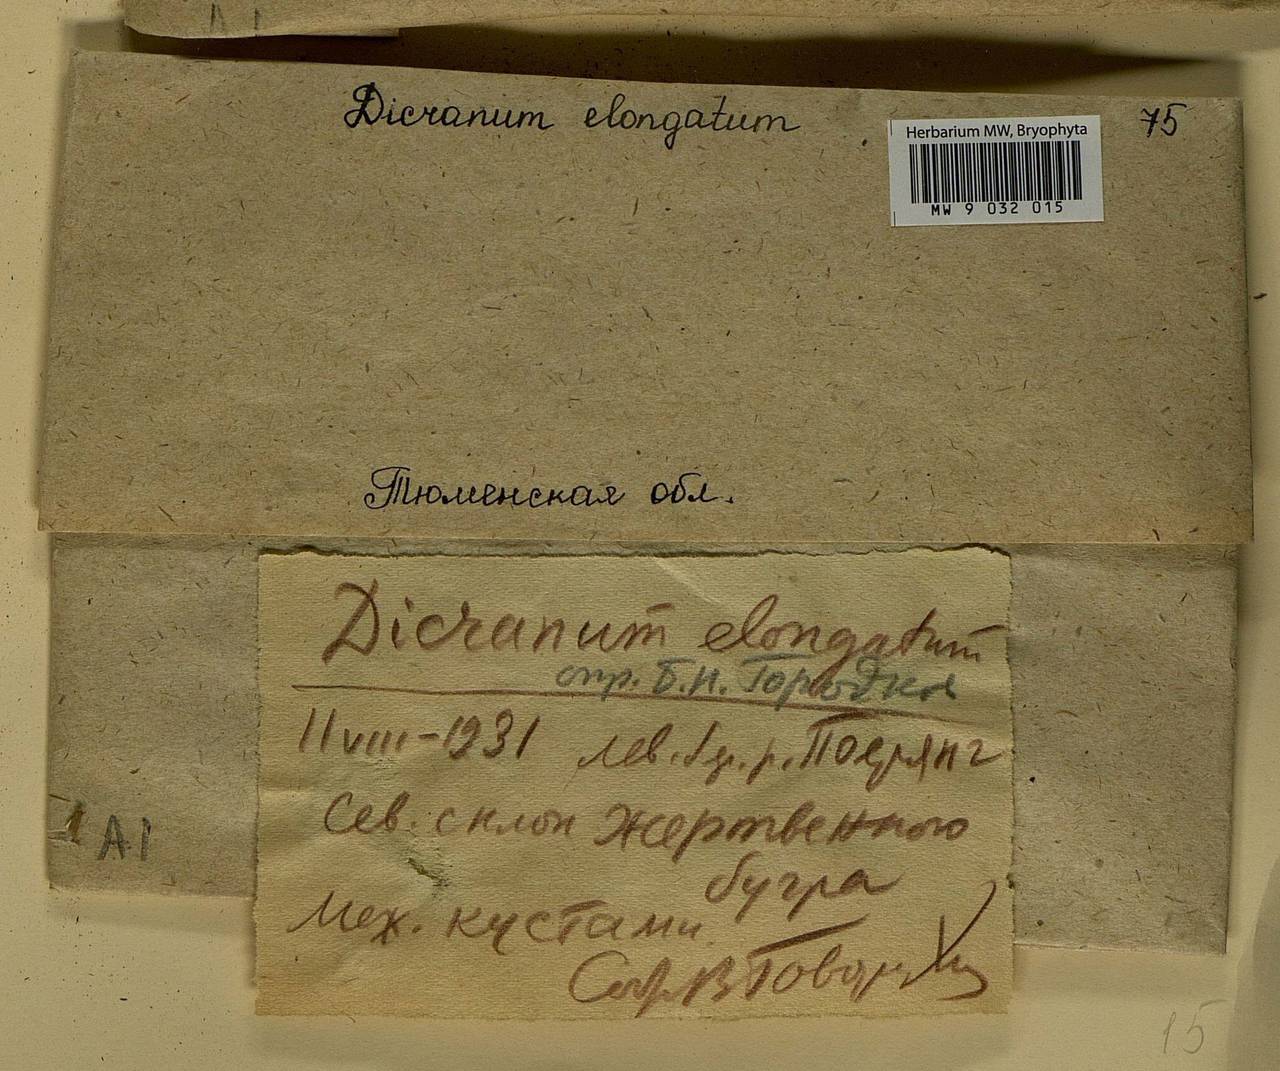 A1
Dicranum elongatum
75
Herbarium MW, Bryophyta
MW 9 032 015
Тюменская обл.
Dicranum elongatum
опр. Б.Н. Городков
11 VIII-1931 лев. р.
Сев. склон жертвенного
бугра
Меж. кустами.
Собр. В
A1
15